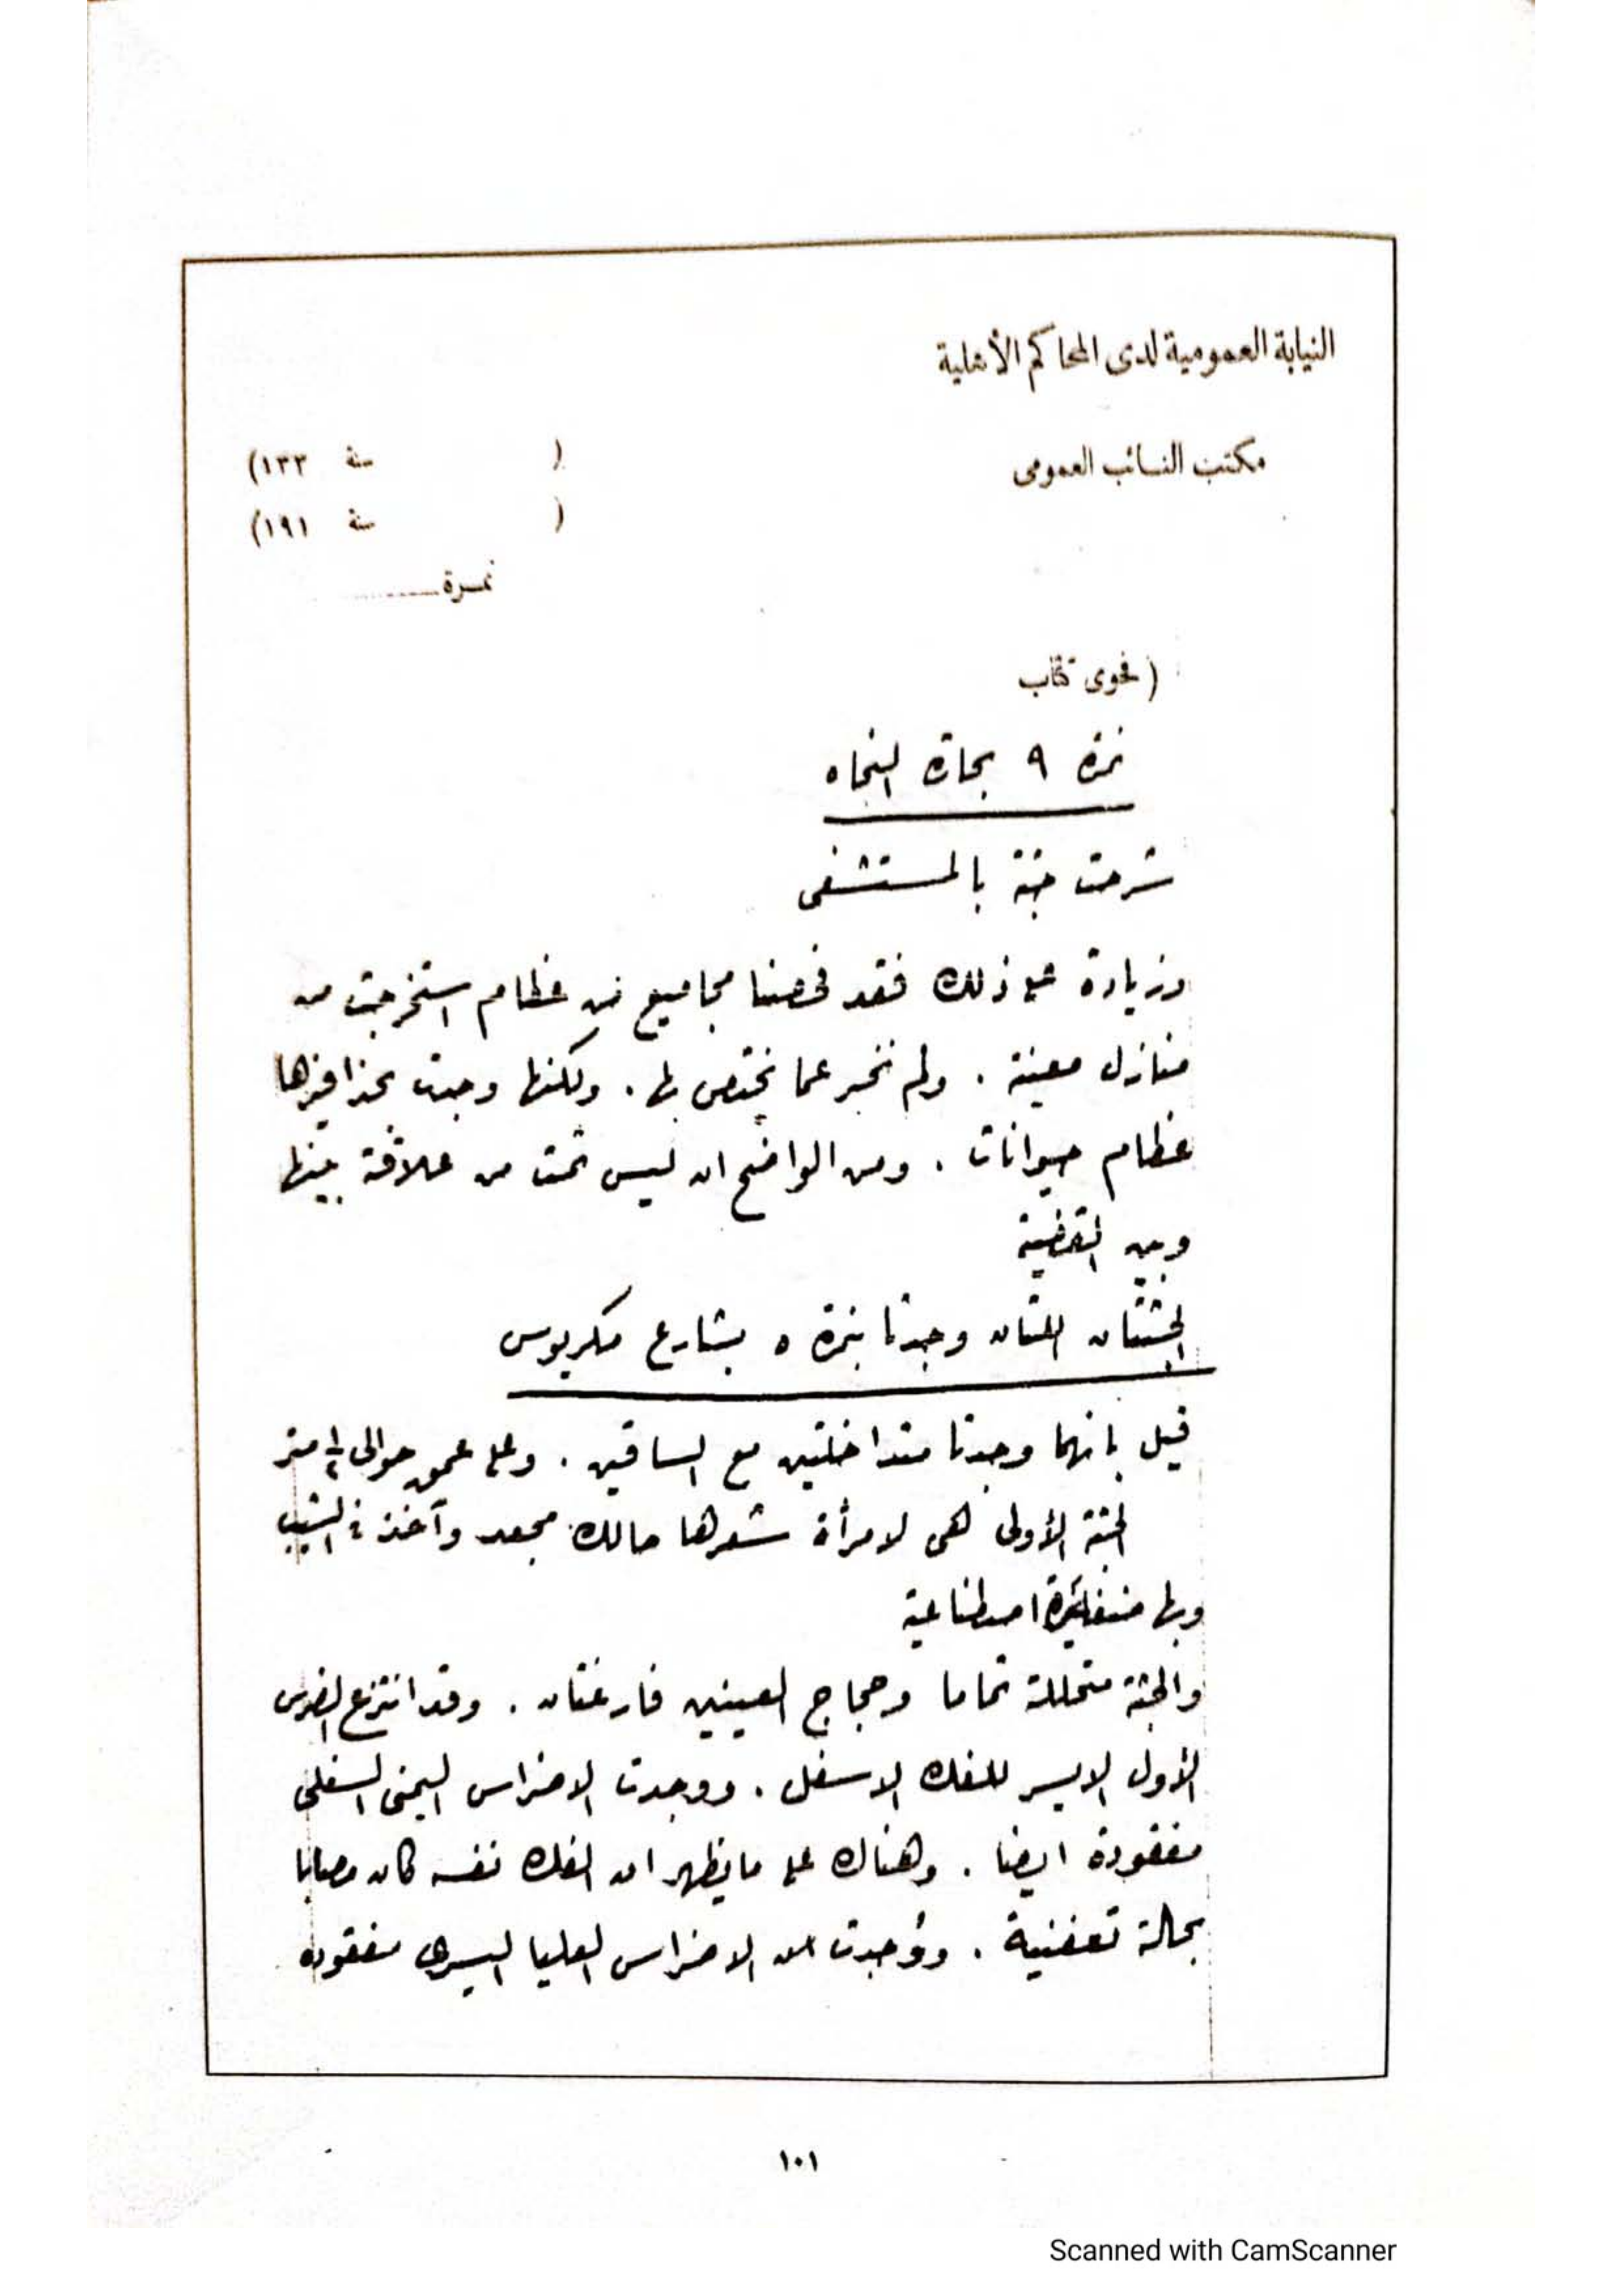 النيابة العمومية لدى المحاكم الأهلية
مكتب النائب العمومى
( سنة ١٣٣)
( سنة ١٩١)
نمرة
( فحوى كتاب
نمرة ٩ بحارة النجاه
شرحت جثة بالمستشفى
وزيادة على ذلك فقد فحصنا مجاميع من عظام استخرجت من
منازل معينة . ولم نخبر عما يختص بها . ولكنها وجدت بحذافيرها
عظام حيوانات . ومن الواضح ان ليس ثمت من علاقة بينها
وبين القضية
الجثتان اللتان وجدتا بنمرة ٥ بشارع مكريوس
قيل بانهما وجدتا متداخلتين مع الساقين . وعلى عمق حوالى ½ متر
الجثة الأولى هى لامرأة شعرها حالك مجعد وآخذ فى الشيب
وبها ضفائر اصطناعية
والجثة متحللة تماما وحجاج العينين فارغتان . وقد انتزع الضرس
الأول الايسر للفك الاسفل . ووجدت الاضراس اليمنى السفلى
مفقودة ايضا . وهناك على ما يظهر ان الفك نفسه كان مصابا
بحالة تعفنية . ووجدت الاضراس العليا اليسرى مفقوده
١٠١
Scanned with CamScanner